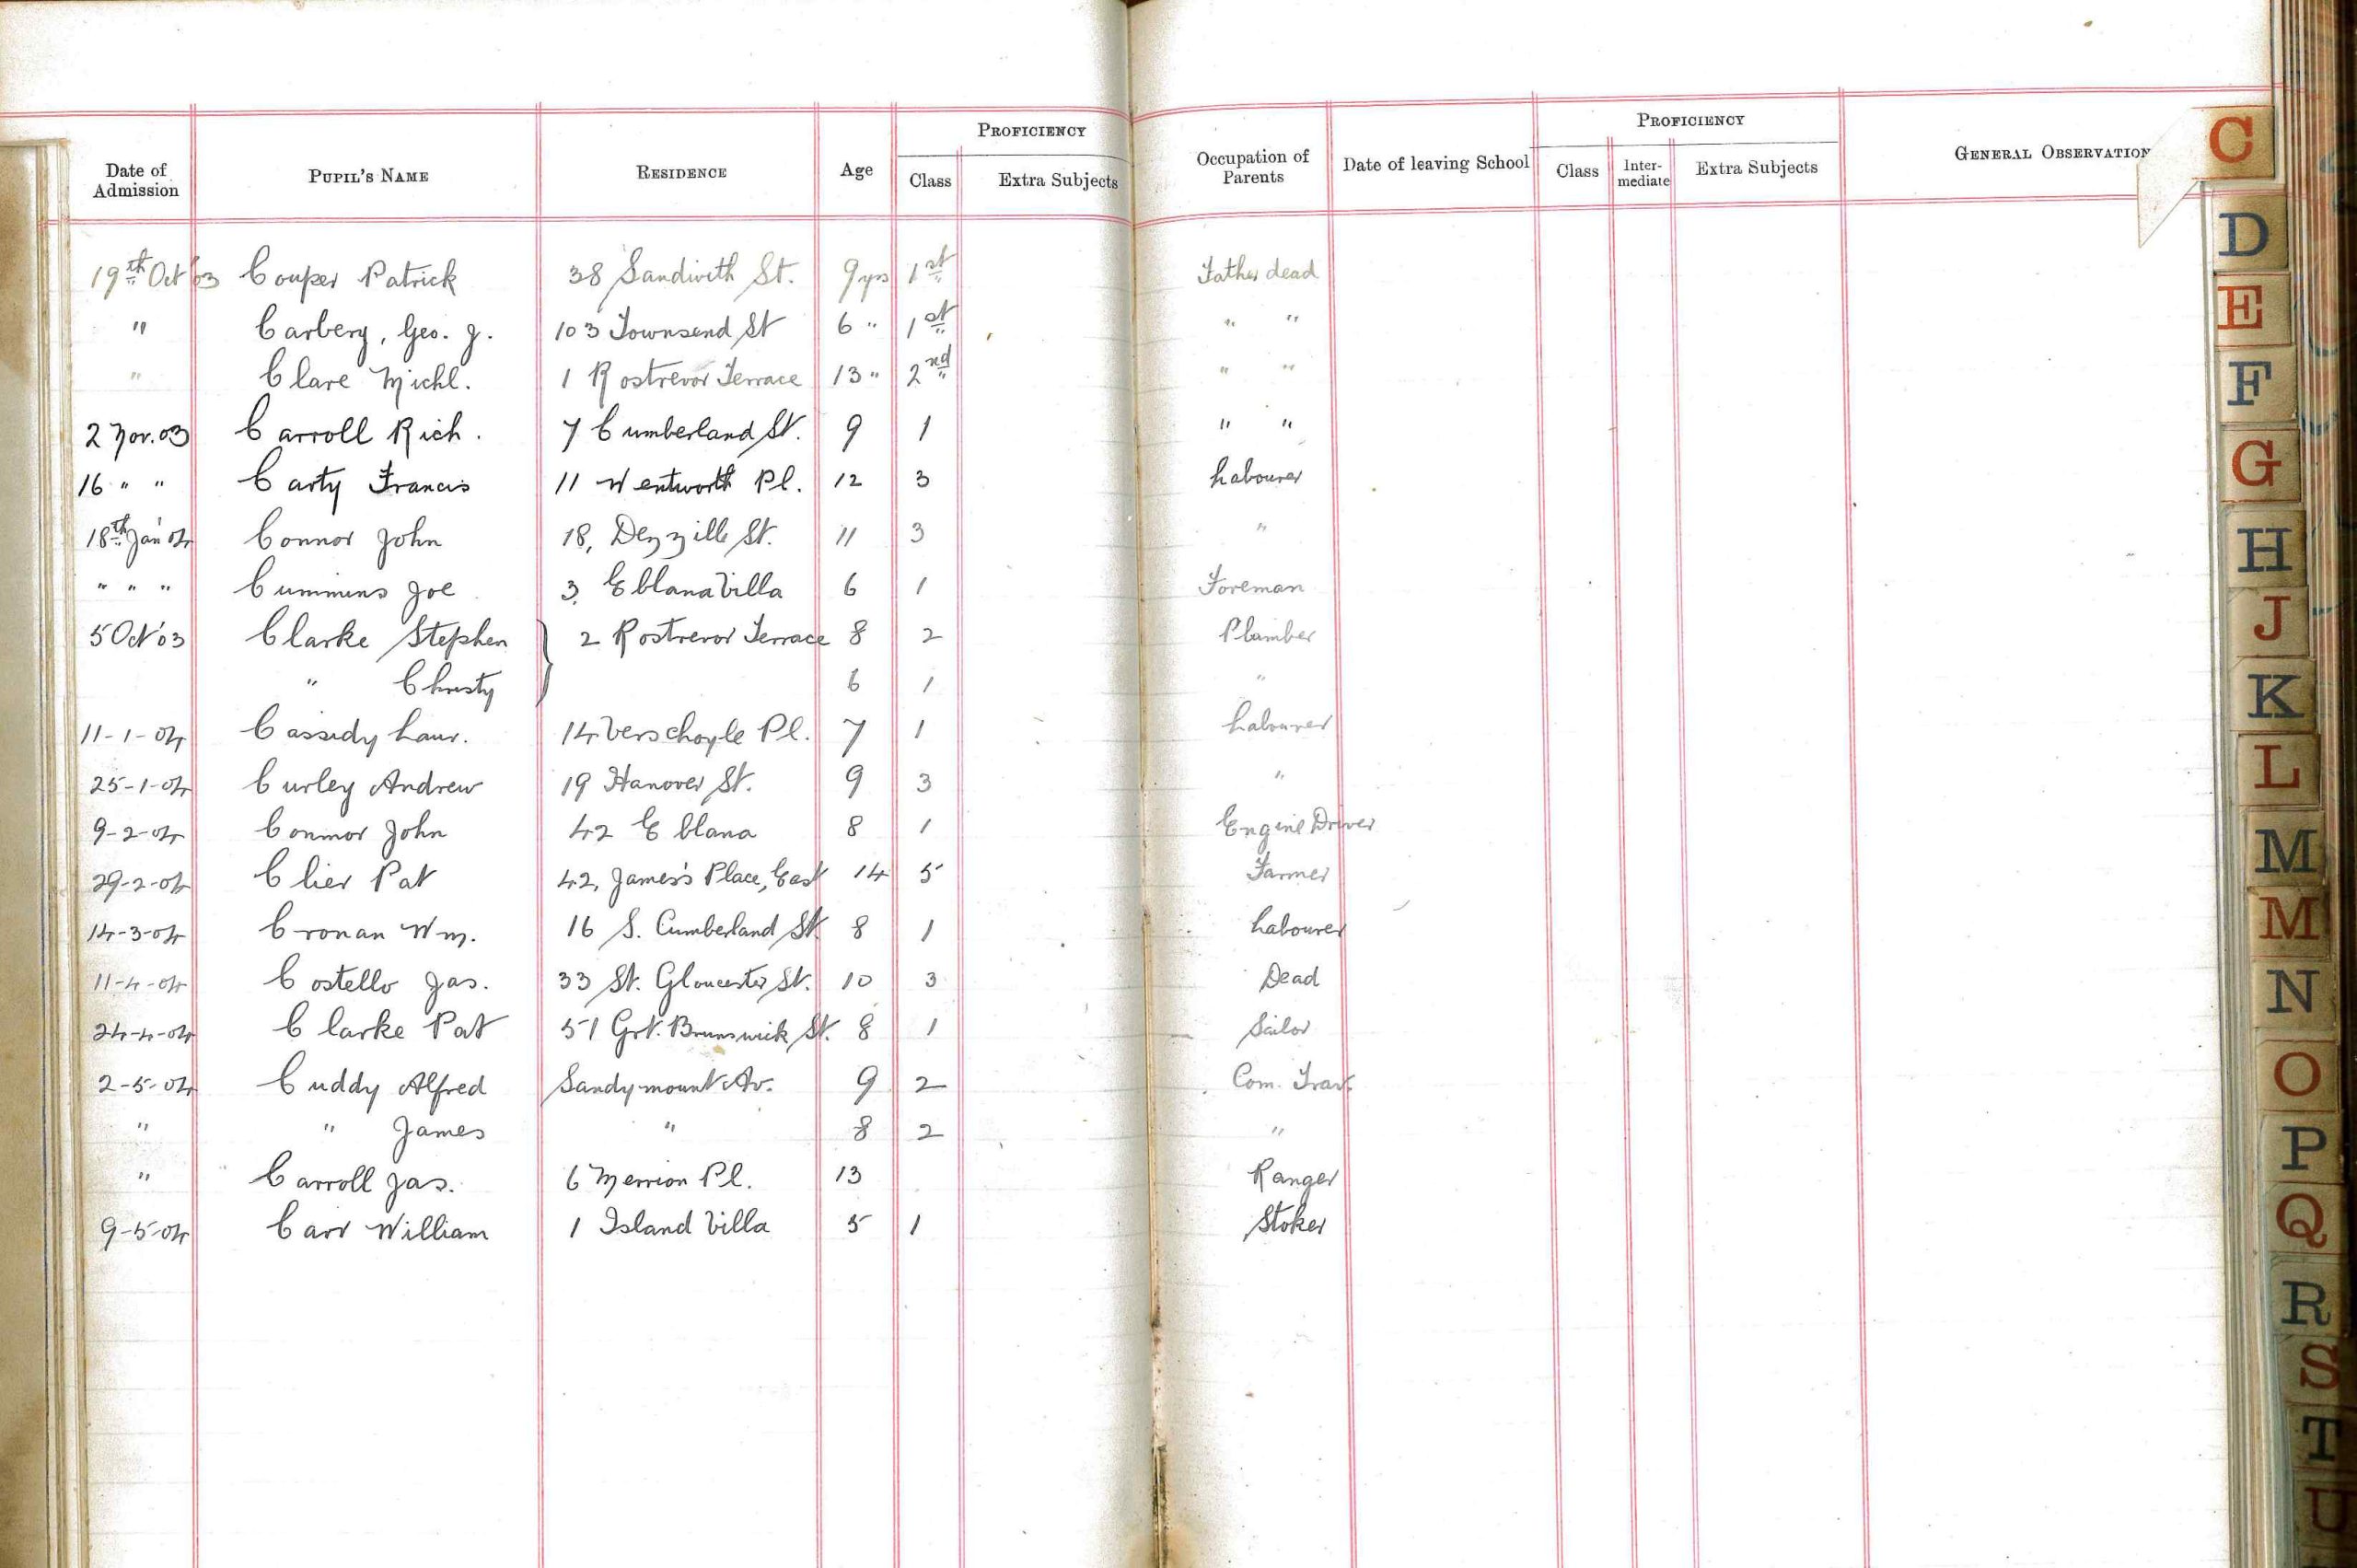 PROFICIENCY PROFICIENCY
Date of Admission PUPIL'S NAME RESIDENCE Age Class Extra Subjects Occupation of Parents Date of leaving School Class Inter-mediate Extra Subjects GENERAL OBSERVATION
19th Oct '03 Couper Patrick 38 Sandwith St. 9 yrs 1st Father dead
" Carbery, Geo. J. 103 Townsend St 6 " 1st " "
" Clare Michl. 1 Rostrevor Terrace 13 " 2nd " "
2 Nov. 03 Carroll Rich. 7 Cumberland St. 9 1 " "
16 " " Carty Francis 11 Wentworth Pl. 12 3 Labourer
18th Jan '04 Connor John 18, Denzille St. 11 3 "
" " " Cummins Joe 3, Eblana Villa 6 1 Foreman
5 Oct '03 Clarke Stephen } 2 Rostrevor Terrace 8 2 Plumber
" Christy 6 1 "
11-1-04 Cassidy Laur. 14 Verschoyle Pl. 7 1 Labourer
25-1-04 Curley Andrew 19 Hanover St. 9 3 "
9-2-04 Connor John 42 Eblana 8 1 Engine Driver
29-2-04 Clier Pat 42, James's Place, East 14 5 Farmer
14-3-04 Cronan Wm. 16 S. Cumberland St. 8 1 Labourer
11-4-04 Costello Jas. 33 St. Gloucester St. 10 3 Dead
24-4-04 Clarke Pat 51 Grt. Brunswick St. 8 1 Sailor
2-5-04 Cuddy Alfred Sandymount Av. 9 2 Com. Trav.
" " James " 8 2 "
" Carroll Jas. 6 Merrion Pl. 13 Ranger
9-5-04 Carr William 1 Island Villa 5 1 Stoker
C
D
E
F
G
H
J
K
L
M
M
N
O
P
Q
R
S
T
U